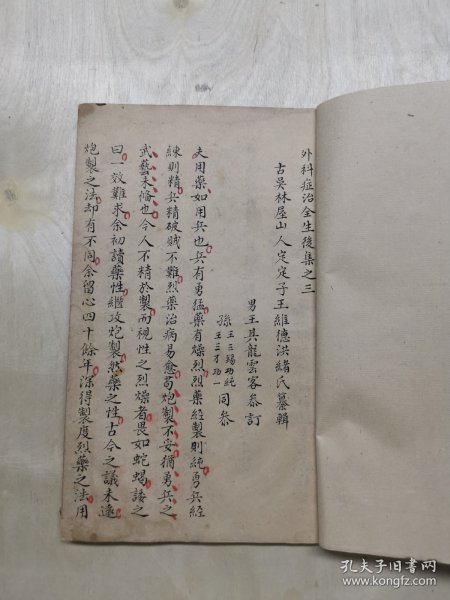 外科症治全生後集之三
古吳林屋山人定定子王維德洪緒氏纂輯
男王其龍雲客叅訂
孫王三錫功純
王三才功一
同叅
夫用藥如用兵也兵有勇猛藥有燥烈烈藥經製則純勇兵經
練則精兵精破賊不難烈藥治病易愈苟炮製不妥猶勇兵之
武藝未備也今人不精於製而視性之烈燥者畏如蛇蝎諉之
曰一效難求余初讀藥性繼攻炮製然藥之性古今之議未遠
炮製之法却有不同余留心四十餘年深得製度烈藥之法用
孔夫子旧书网
www.kongfz.com